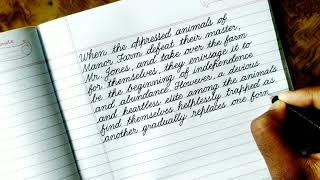 When the oppressed animals of
Manor Farm defeat their master,
Mr. Jones, and take over the farm
for themselves, they envisage it to
be the beginning of independence
and abundance. However, a devious
and heartless elite among the animals
find themselves helplessly trapped as
another gradually replaces one form